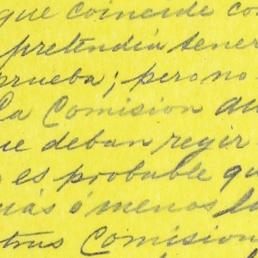 que coincide con
pretendia tener
prueba; pero no
La Comision
que deban regir
es probable que
más ó menos
otras Comision